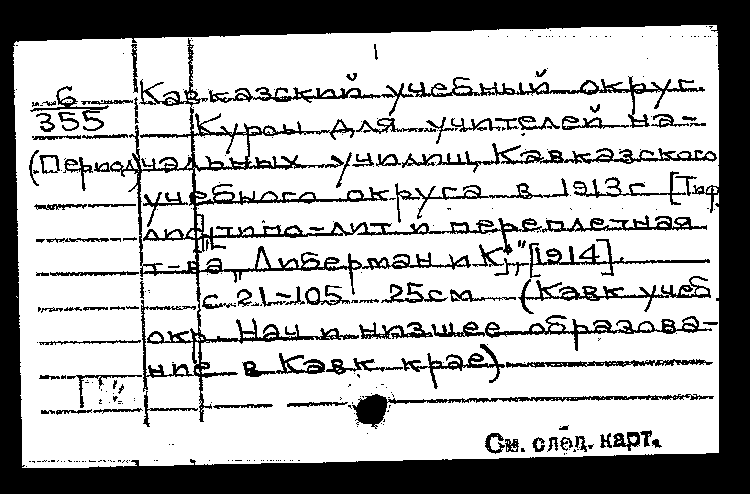 1
6
355
(Период)
Кавказский учебный округ.
Курсы для учителей на-
чальных училищ Кавказского
учебного округа в 1913 г [Тиф
лис] типо-лит и переплетная
т-ва "Либерман и К°", [1914].
с 21-105 25см (Кавк учеб.
окр. Нач и низшее образова-
ние в Кавк крае)
См. след. карт.